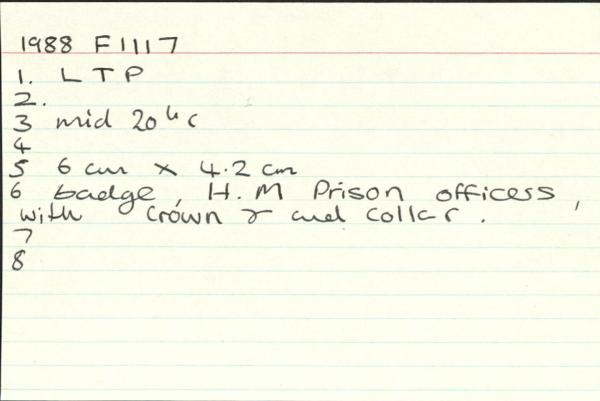 1988 F1117
1. L T P
2.
3 mid 20th c
4
5 6 cm x 4.2 cm
6 badge, H.M Prison officers,
with crown & and collar.
7
8